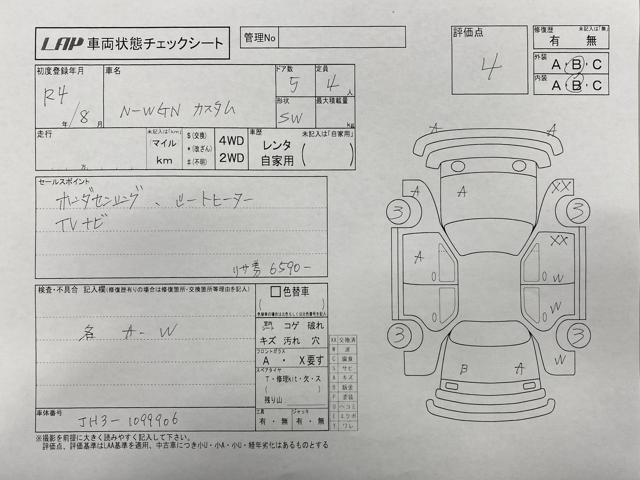 LAP 車両状態チェックシート
管理No
評価点
4
修復歴 未記入は「無」
有 無
外装
A・B・C
内装
A・B・C
初度登録年月
R4年/8月
車名
N-WGN カスタム
ドア数
5
定員
4人
形状
SW
最大積載量
kg
走行
万
未記入は「km」
マイル
km
$(交換)
*(改ざん)
#(不明)
4WD
2WD
車歴 未記入は「自家用」
レンタ
自家用
セールスポイント
ホンダセンシング、シートヒーター
TVナビ
リサ券 6590-
検査・不具合 記入欄(修復歴有りの場合は修復箇所・交換箇所等理由を記入)
各 A-W
色替車
コゲ 破れ
キズ 汚れ 穴
フロントガラス
A ・ X要す
スペアタイヤ
T・修理kit・欠・ス
残り山
工具
有・無
ジャッキ
有・無
XX 交換済
W 波
S サビ
A キズ
B 鈑金
P 塗装
U ヘコミ
E エクボ
Y ワレ
車体番号
JH3-1099906
※撮影を前提に大きく読みやすく記入して下さい。
評価点、評価基準はLAA基準を適用、中古車につき小U・小A・小U・経年劣化はあるものとする
A
A
A
A
XX
3
3
A
XX
W
W
3
3
W
B
A